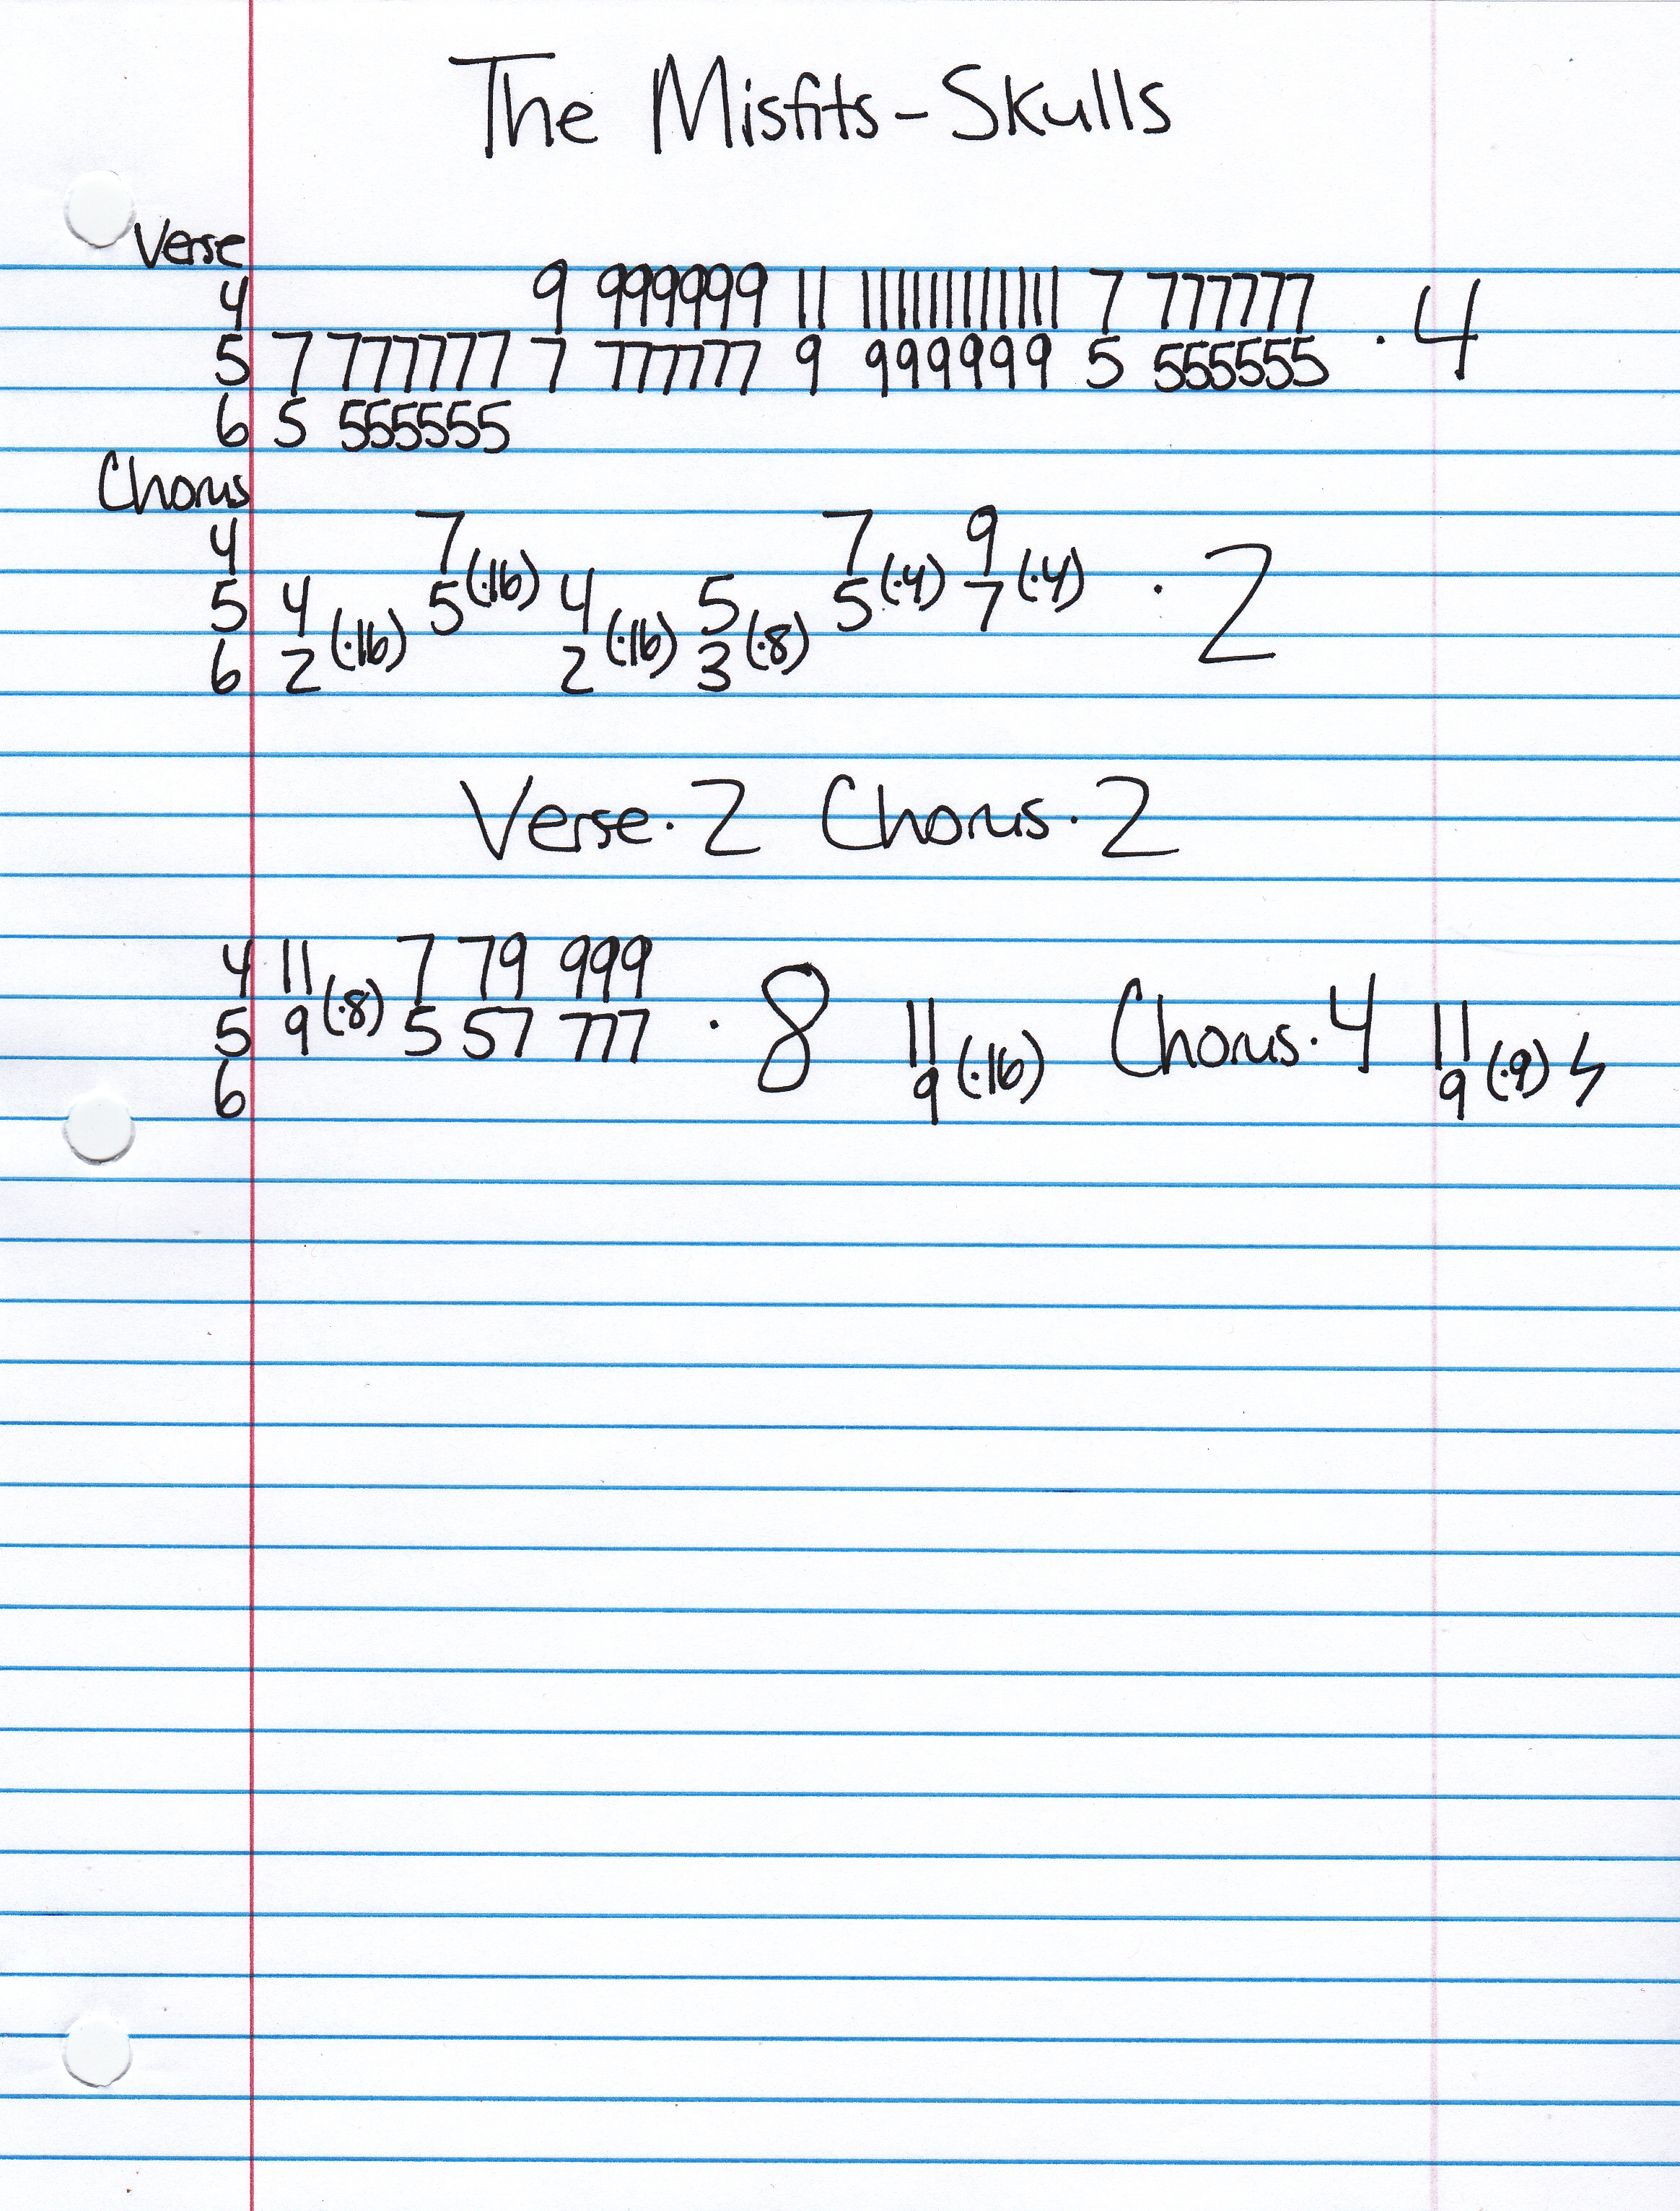 The Misfits - Skulls
Verse
4 9 999999 11 111111111111 7 777777
5 7 777777 7 777777 9 999999 5 555555 · 4
6 5 555555
Chorus
4 7 7 9
5 4 5 (·16) 4 5 5 (·4) 7 (·4) · 2
6 2 (·16) 2 (·16) 3 (·8)
Verse · 2 Chorus · 2
4 11 7 79 999
5 9 (·8) 5 57 777 · 8 11 9 (·16) Chorus · 4 11 9 (·9)
6